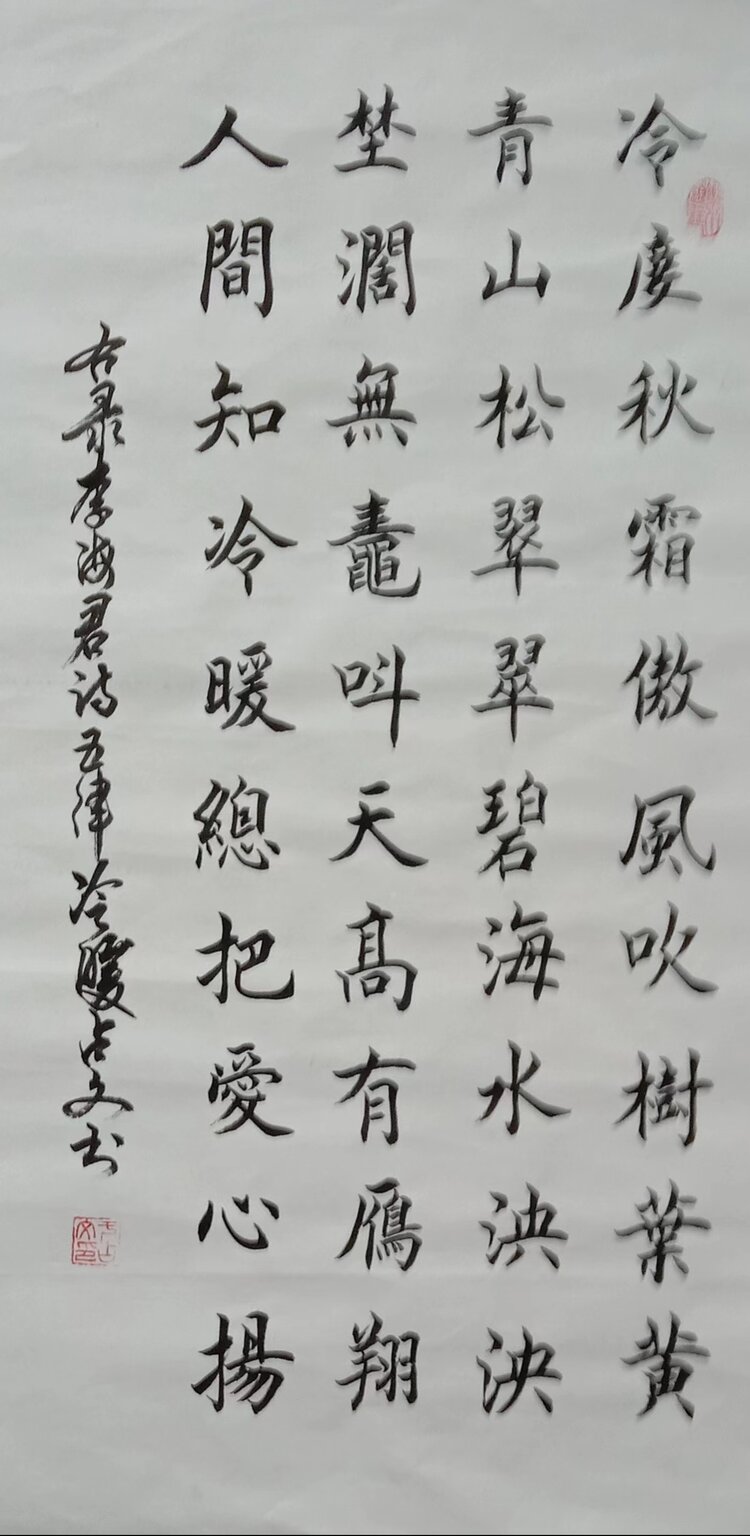 冷度秋霜傲風吹樹葉黄
青山松翠翠碧海水泱泱
埜濶無鼃呌天髙有鴈翔
人間知冷暖總把愛心揚
右录李海君诗五律冷暖占文书